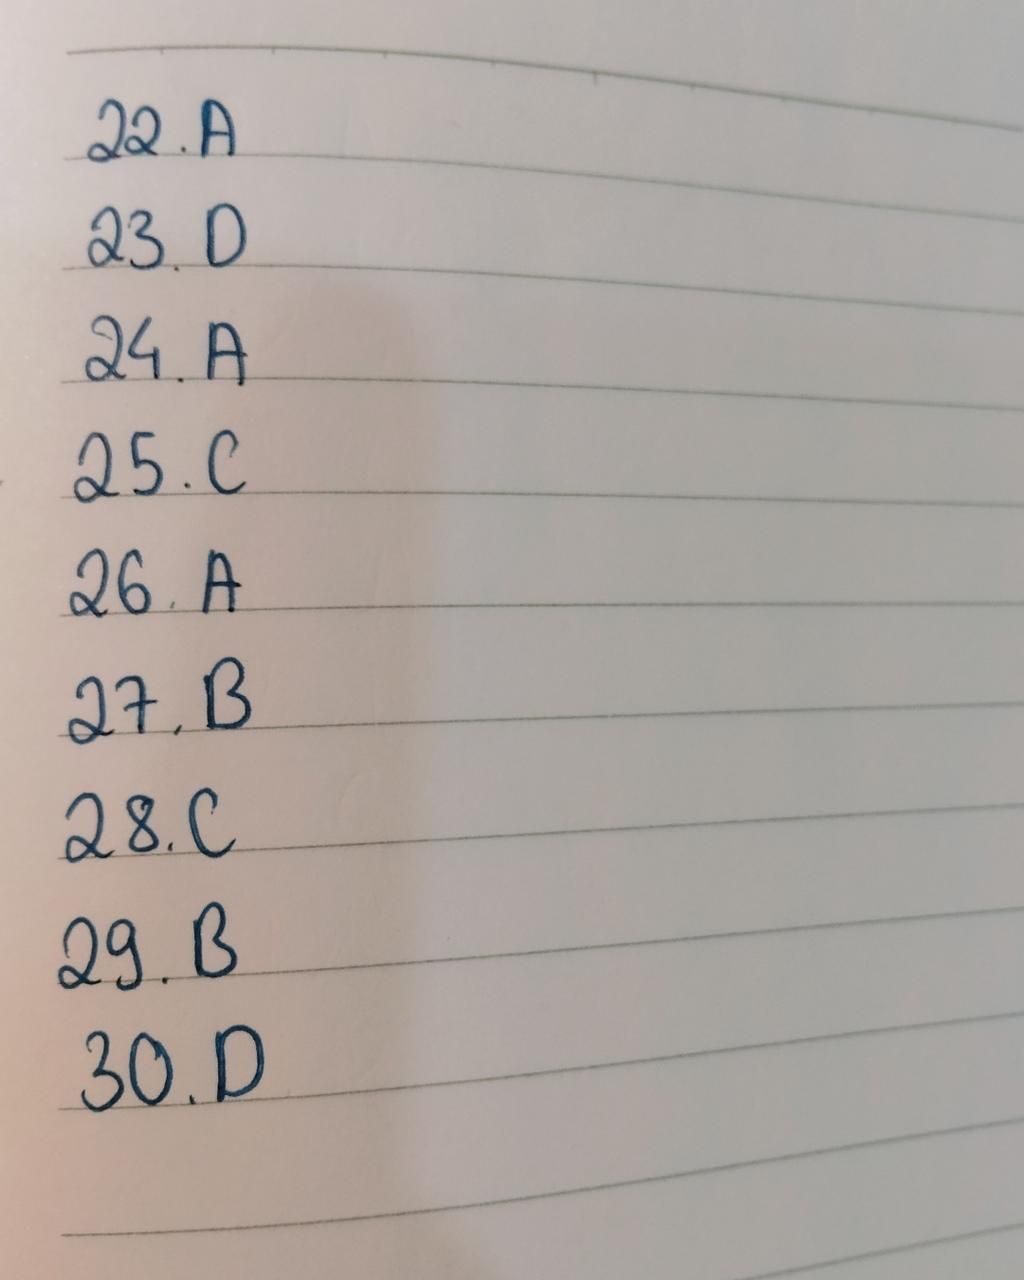 22. A
23. D
24. A
25. C
26. A
27. B
28. C
29. B
30. D